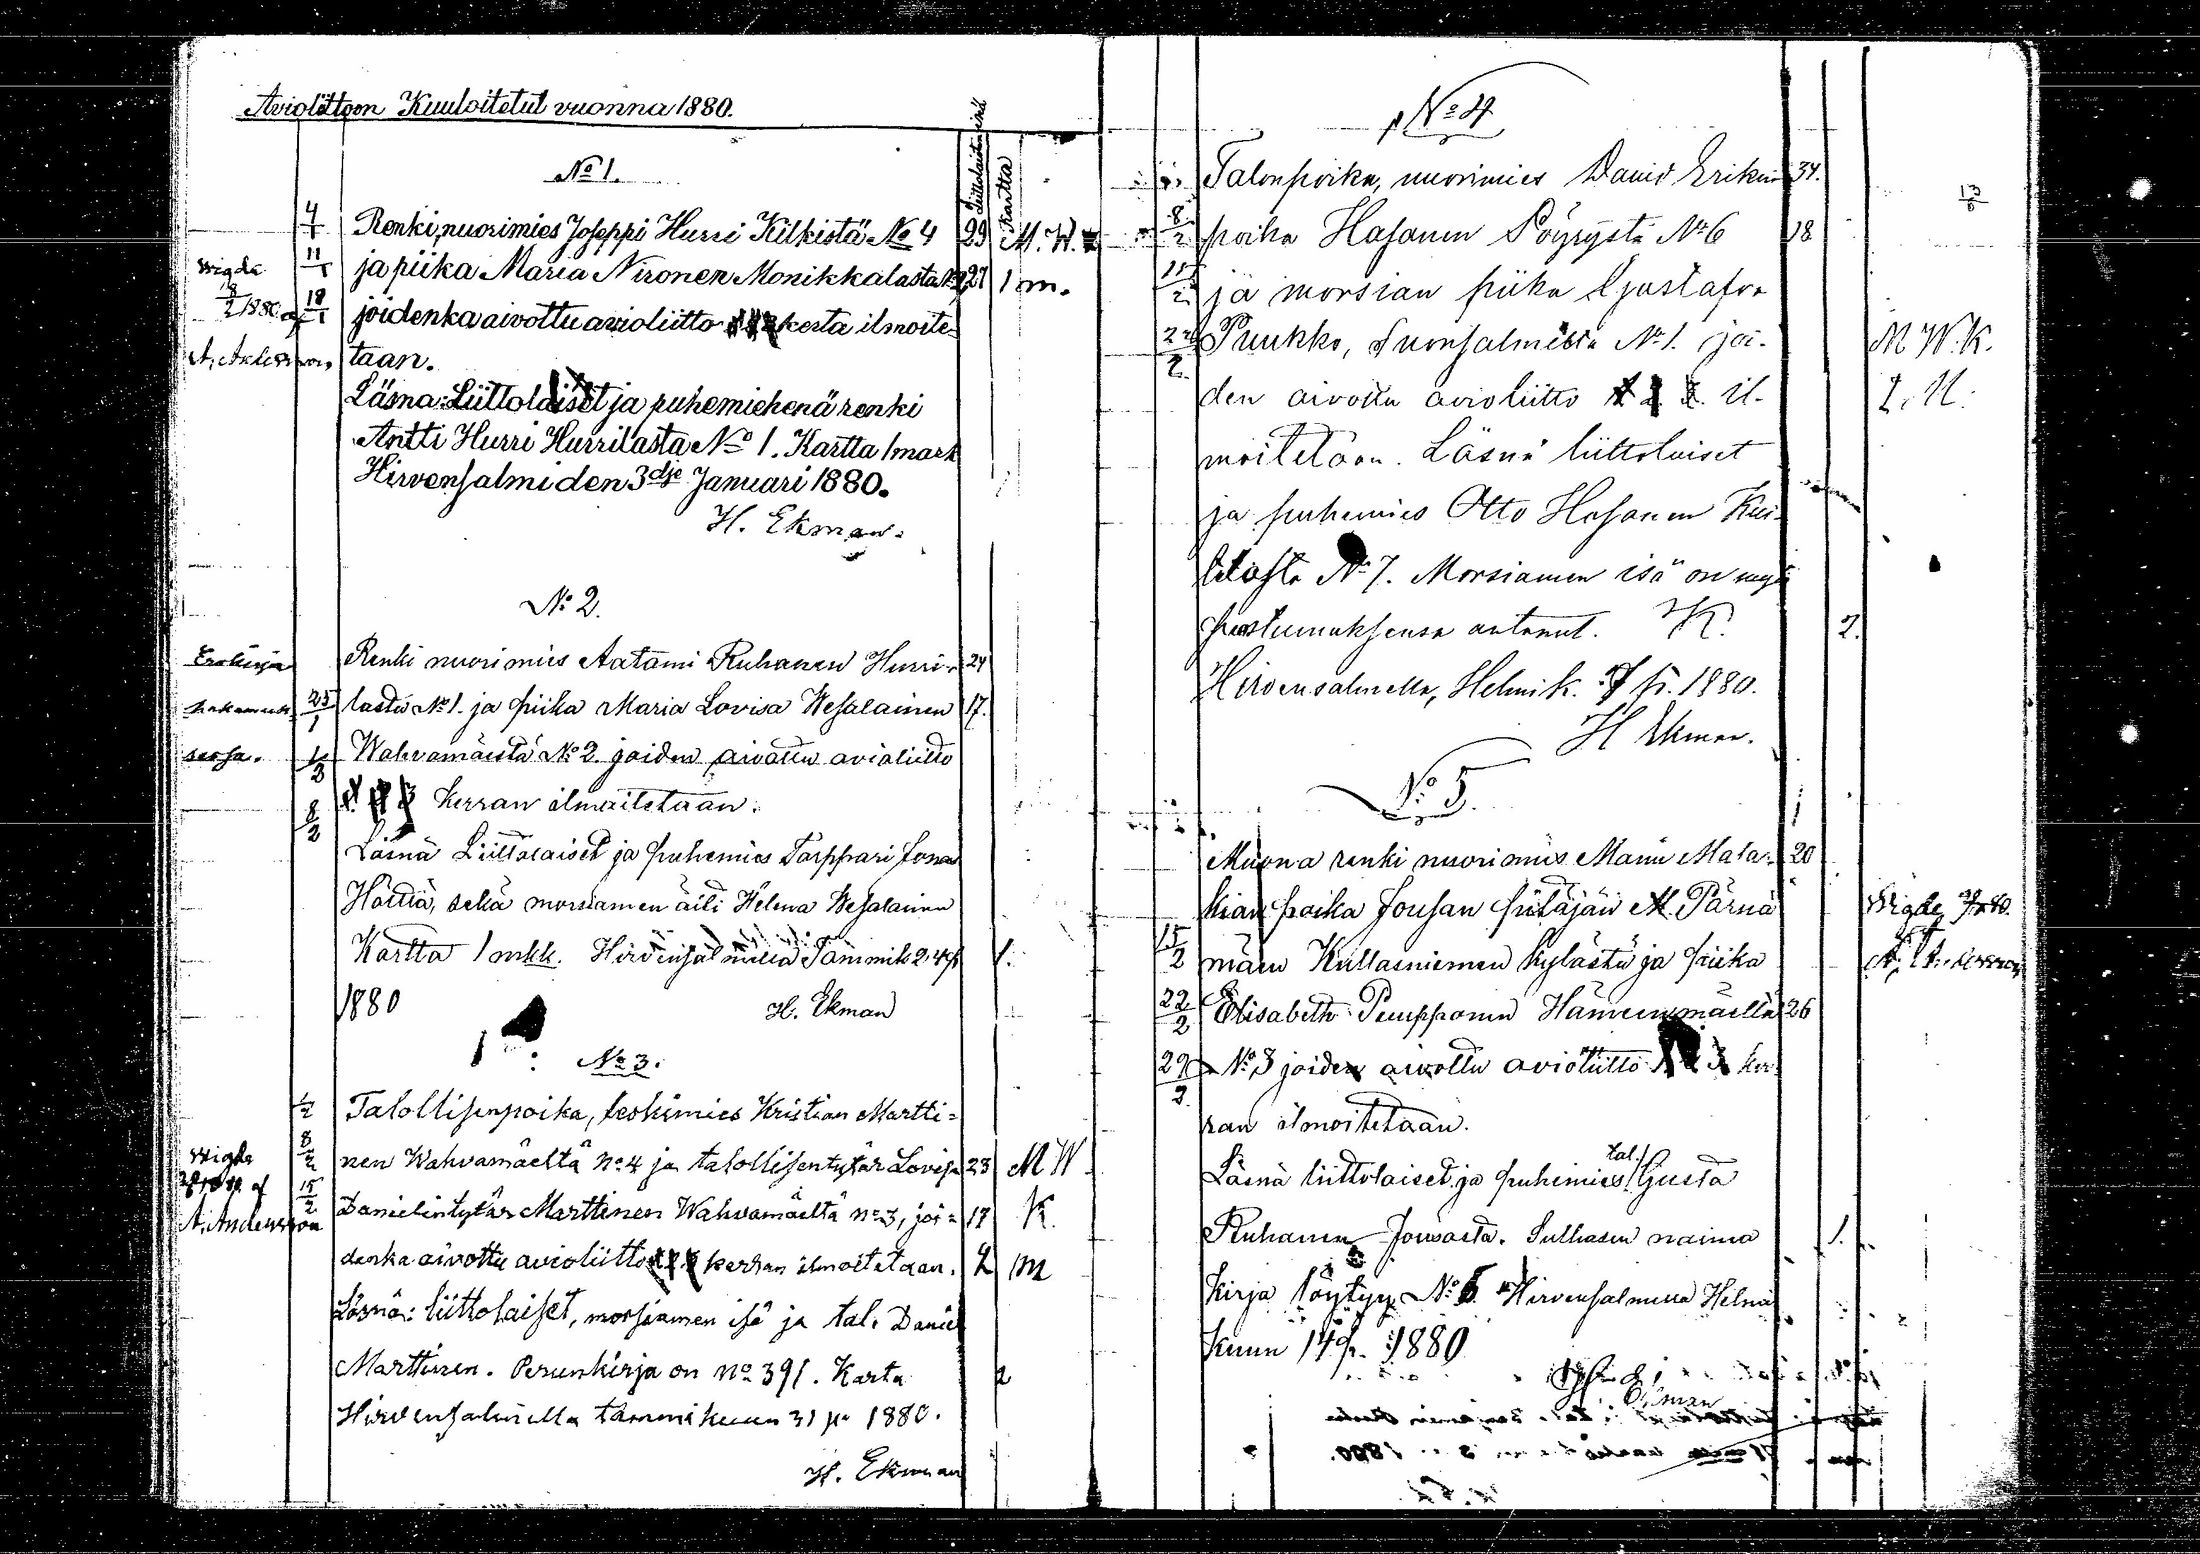 Avioliittoon Kuuloitetut vuonna 1880.
Kartta
No 1.
4/1 Renki, nuorimies Joseppi Hurri Kilkistä No 4 29 M. W.
Wigda 11/1 ja piika Maria Nironen Monikkalasta 27 1 m.
8/2 1880 af 18/1 joidenka aivottu avioliitto 1 2 3 kerta ilmoite-
A. Andersson, taan.
Läsna: Liittolaiset ja puhemiehenä renki
Antti Hurri Hurrilasta No 1. Kartta 1 mark
Hirvensalmi den 3dje Januari 1880.
H. Ekman.
No 2.
Erokirja Renki nuorimies Aatami Ruhanen Hurri- 24
hakamuk 25/1 lasta No 1. ja piika Maria Lovisa Wesalainen 17.
sessa. 1/2 Wahvamäistä No 2. joiden aivottu avioliitto
8/2 1 2 3 kerran ilmoitetaan.
Läsnä Liittolaiset ja puhemies Torppari Jonas
Höttiä, sekä morsiamen äiti Helena Wesalainen
Kartta 1 mkk. Hirvensalmella Tammik 24 p 1.
1880 H. Ekman
No 3.
1/2 Talollisenpoika, leskimies Kristian Martti=
Wigda 8/2 nen Wahvamäeltä No 4 ja talollisentytär Lovisa 23 M W
af 15/2 Danielintytär Marttinen Wahvamäeltä No 3, joi= 17 K.
A. Andersson denka aivottu avioliitto 1 2 3 kerran ilmoitetaan. 2 m
Läsnä: liittolaiset, morsiamen isä ja tal. Daniel
Marttinen. Perunkirja on No 391. Karta 2
Hirvensalmella tammikuun 31 p. 1880.
H. Ekman
No 4
Talonpoika, nuorimies David Erikin 34.
8/2 poika Hasanen Pöyrystä No 6 18
15/2 ja morsian piika Gustafva
22/2 Puukko, Suonsalmelta No 1. joi- M W. K.
den aivottu avioliitto 1 2 3. il- 2. M.
moitetaan. Läsnä liittolaiset
ja puhemies Otto Hasanen Kui-
No 7. Morsiamen isä on myö
suostumuksensa antanut. K. 2.
Hirvensalmella, Helmik. 7 p. 1880.
H Ekman.
No 5.
Muona renki nuorimies Manu Mata- 20
kian poika Jousan pitäjän M. Pärnä Wigde
15/2 mäen Kullasniemen kylästä ja piika A. Andersson
22/2 Elisabeth Puupponen Hämeenmäeltä 26
29/2 No 3 joiden aivottu avioliitto 1 2 3 ker-
ran ilmoitetaan.
Läsnä liittolaiset ja puhemies tal. Gusta
Ruhanen Jousasta. Sulhasen naima 1.
kirja löytyy No 6. Hirvensalmella Helmi
kuun 14 p. 1880
H. Ekman